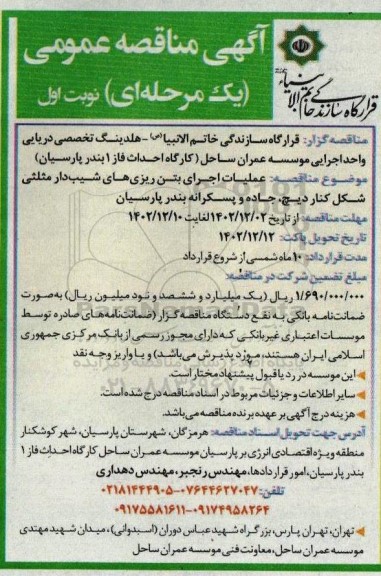 آگهی مناقصه عمومی
(یک مرحله‌ای) نوبت اول
قرارگاه سازندگی خاتم الانبیاء
مناقصه گزار: قرارگاه سازندگی خاتم الانبیا (ص) - هلدینگ تخصصی دریایی
واحد اجرایی موسسه عمران ساحل (کارگاه احداث فاز ۱ بندر پارسیان)
موضوع مناقصه: عملیات اجرای بتن ریزی‌های شیب‌دار مثلثی
شکل کنار دیچ، جاده و پسکرانه بندر پارسیان
مهلت مناقصه: از تاریخ ۱۴۰۲/۱۲/۰۲ لغایت ۱۴۰۲/۱۲/۱۰
تاریخ تحویل پاکت: ۱۴۰۲/۱۲/۱۲
مدت قرارداد: ۱۰ ماه شمسی از شروع قرارداد
مبلغ تضمین شرکت در مناقصه:
۱/۶۹۰/۰۰۰/۰۰۰ ریال (یک میلیارد و ششصد و نود میلیون ریال) به‌صورت
ضمانت‌نامه بانکی به نفع دستگاه مناقصه گزار (ضمانت‌نامه‌های صادره توسط
موسسات اعتباری غیربانکی که دارای مجوز رسمی از بانک مرکزی جمهوری
اسلامی ایران هستند، مورد پذیرش می‌باشد) و یا واریز وجه نقد
این موسسه در رد یا قبول پیشنهاد مختار است.
سایر اطلاعات و جزئیات مربوط در اسناد مناقصه درج شده است.
هزینه درج آگهی بر عهده برنده مناقصه می‌باشد.
آدرس جهت تحویل اسناد مناقصه: هرمزگان، شهرستان پارسیان، شهر کوشکنار
منطقه ویژه اقتصادی انرژی بر پارسیان موسسه عمران ساحل کارگاه احداث فاز ۱
بندر پارسیان، امور قراردادها، مهندس رنجبر، مهندس دهداری
تلفن: ۰۷۶۴۴۶۲۷۰۴۷-۰۲۱۸۱۴۴۴۹۰۵
۰۹۱۷۴۹۵۸۲۶۴-۰۹۱۷۵۵۸۱۶۱۱
تهران، تهران پارس، بزرگراه شهید عباس دوران (اسبدوانی)، میدان شهید مهتدی
موسسه عمران ساحل، معاونت فنی موسسه عمران ساحل